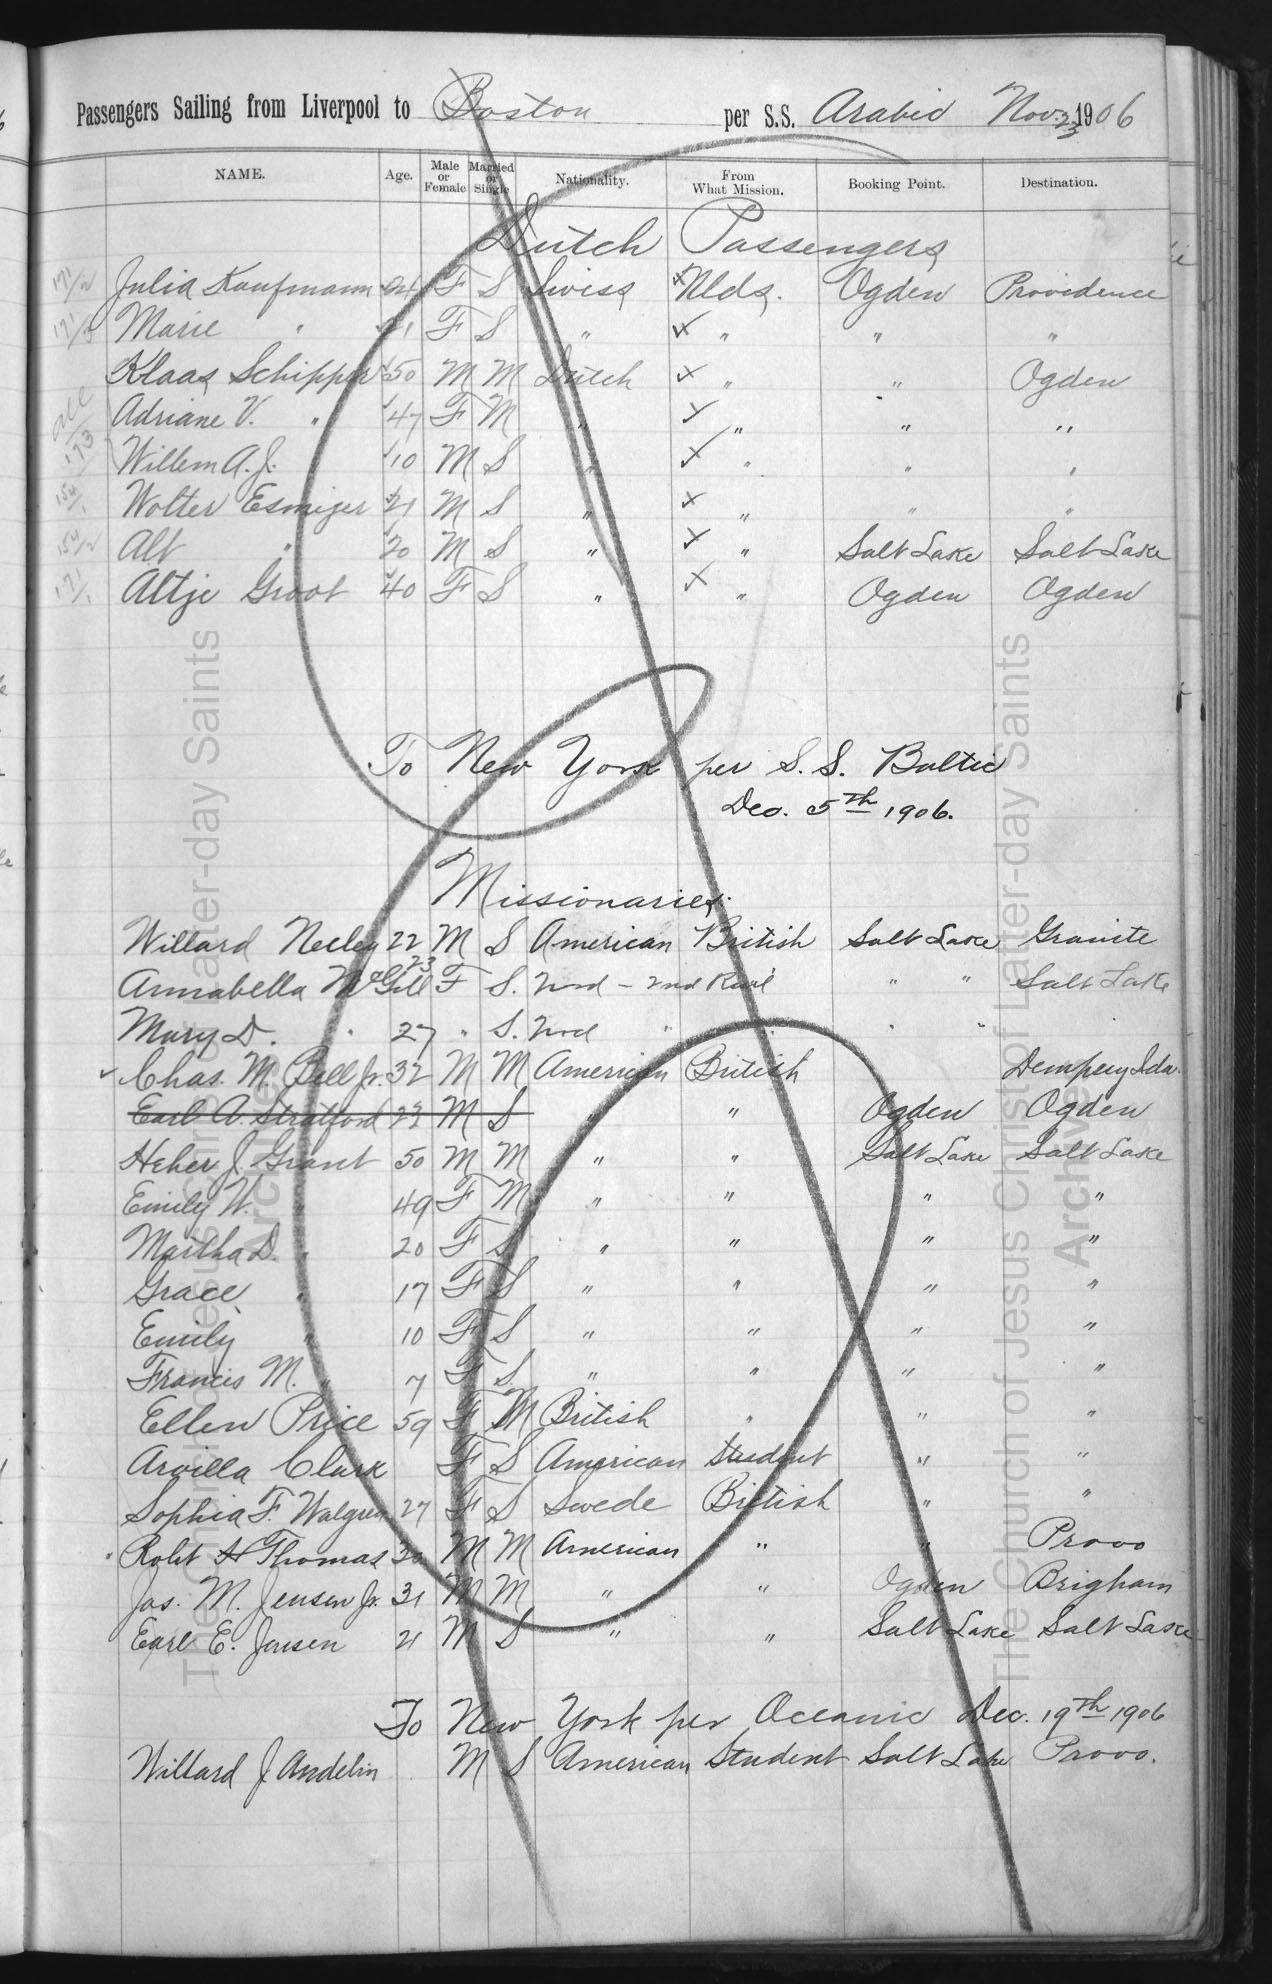 Passengers Sailing from Liverpool to Boston per S.S. Arabic Nov. 23 1906
NAME. Age. Male or Female Married or Single Nationality. From What Mission. Booking Point. Destination.
Dutch Passengers
171/2 Julia Kaufmann 24 F S Swiss Nlds. Ogden Providence
171/3 Marie " 21 F S " " " "
Klaas Schipper 50 M M Dutch " " Ogden
all 173 Adriane V. " 47 F M " " " "
Willem A. J. 10 M S " " " "
154/1 Wolter Esmijer 21 M S " " " "
154/2 Alt " 20 M S " " Salt Lake Salt Lake
171/1 Altje Groot 40 F S " " Ogden Ogden
To New York per S. S. Baltic
Dec. 5th 1906.
Missionaries.
Willard Neeley 22 M S American British Salt Lake Granite
Annabella McGill 23 F S. 2nd - 2nd Rail " " Salt Lake
Mary D. " 27 " S. 2nd " " " "
Chas. M. Bell Jr. 32 M M American British Dempsey Ida.
Earl A. Stratford 22 M S " " Ogden Ogden
Heber J. Grant 50 M M " " Salt Lake Salt Lake
Emily W. " 49 F M " " " "
Martha D. " 20 F S " " " "
Grace " 17 F S " " " "
Emily " 10 F S " " " "
Francis M. " 7 F S. " " " "
Ellen Price 59 F M British " " "
Arvilla Clark F S American Student " "
Sophia F. Walgren 27 F S Swede British " "
Robt H Thomas 30 M M American " " Provo
Jas. M. Jensen Jr. 31 M M " " Ogden Brigham
Earl E. Jensen 21 M S " " Salt Lake Salt Lake
To New York per Oceanic Dec. 19th 1906
Willard J Andelin M S American Student Salt Lake Provo.
The Church of Jesus Christ of Latter-day Saints
Archives
The Church of Jesus Christ of Latter-day Saints
Archives